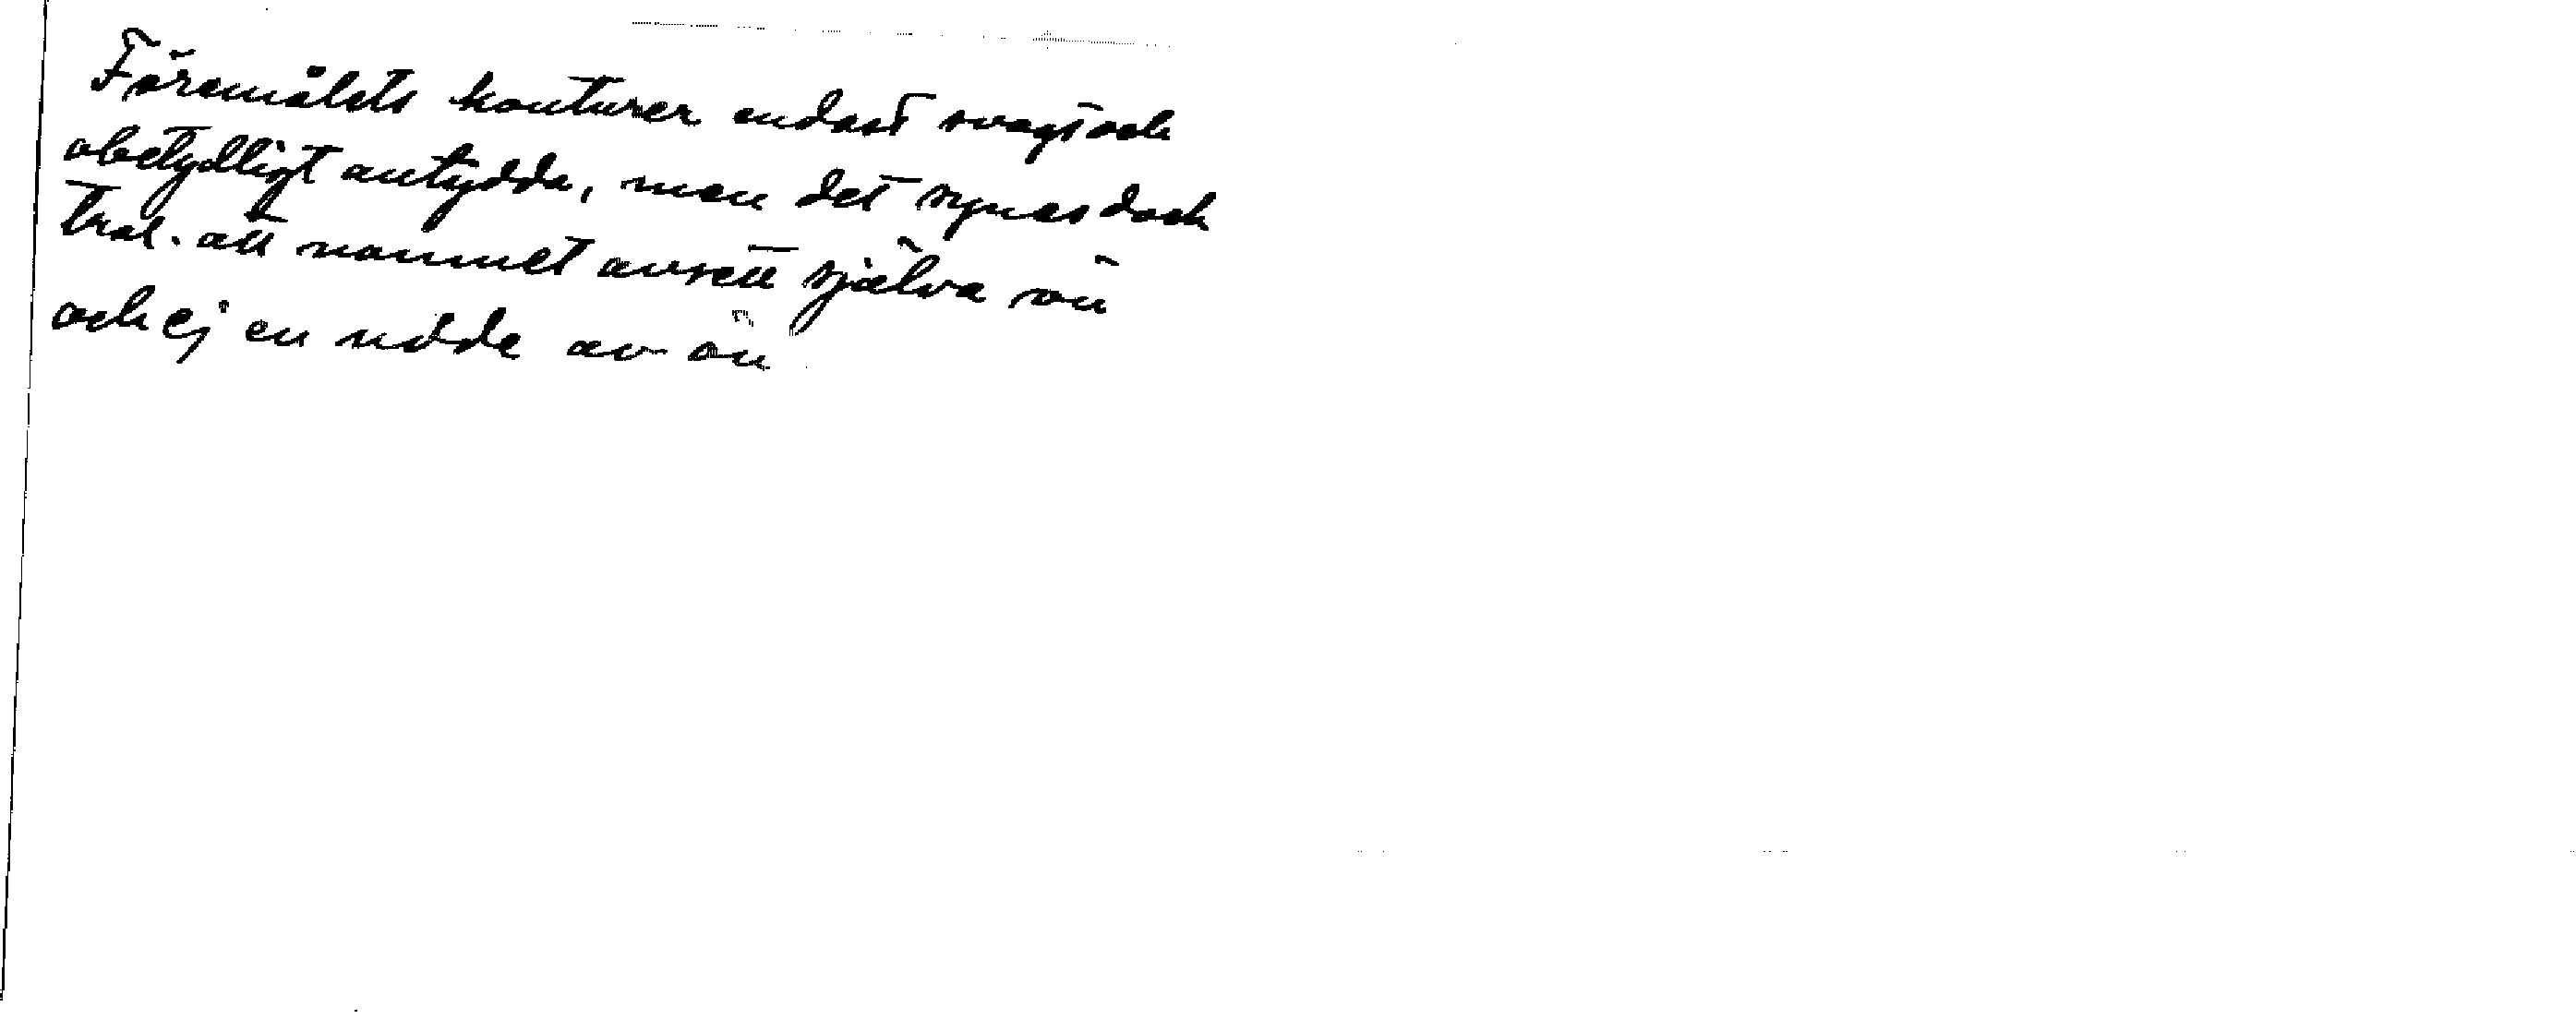 Föremålets konturer endast svagt och
obetydligt antydda, men det synes dock
trol. att namnet avsett själva ön
och ej en udde av ön